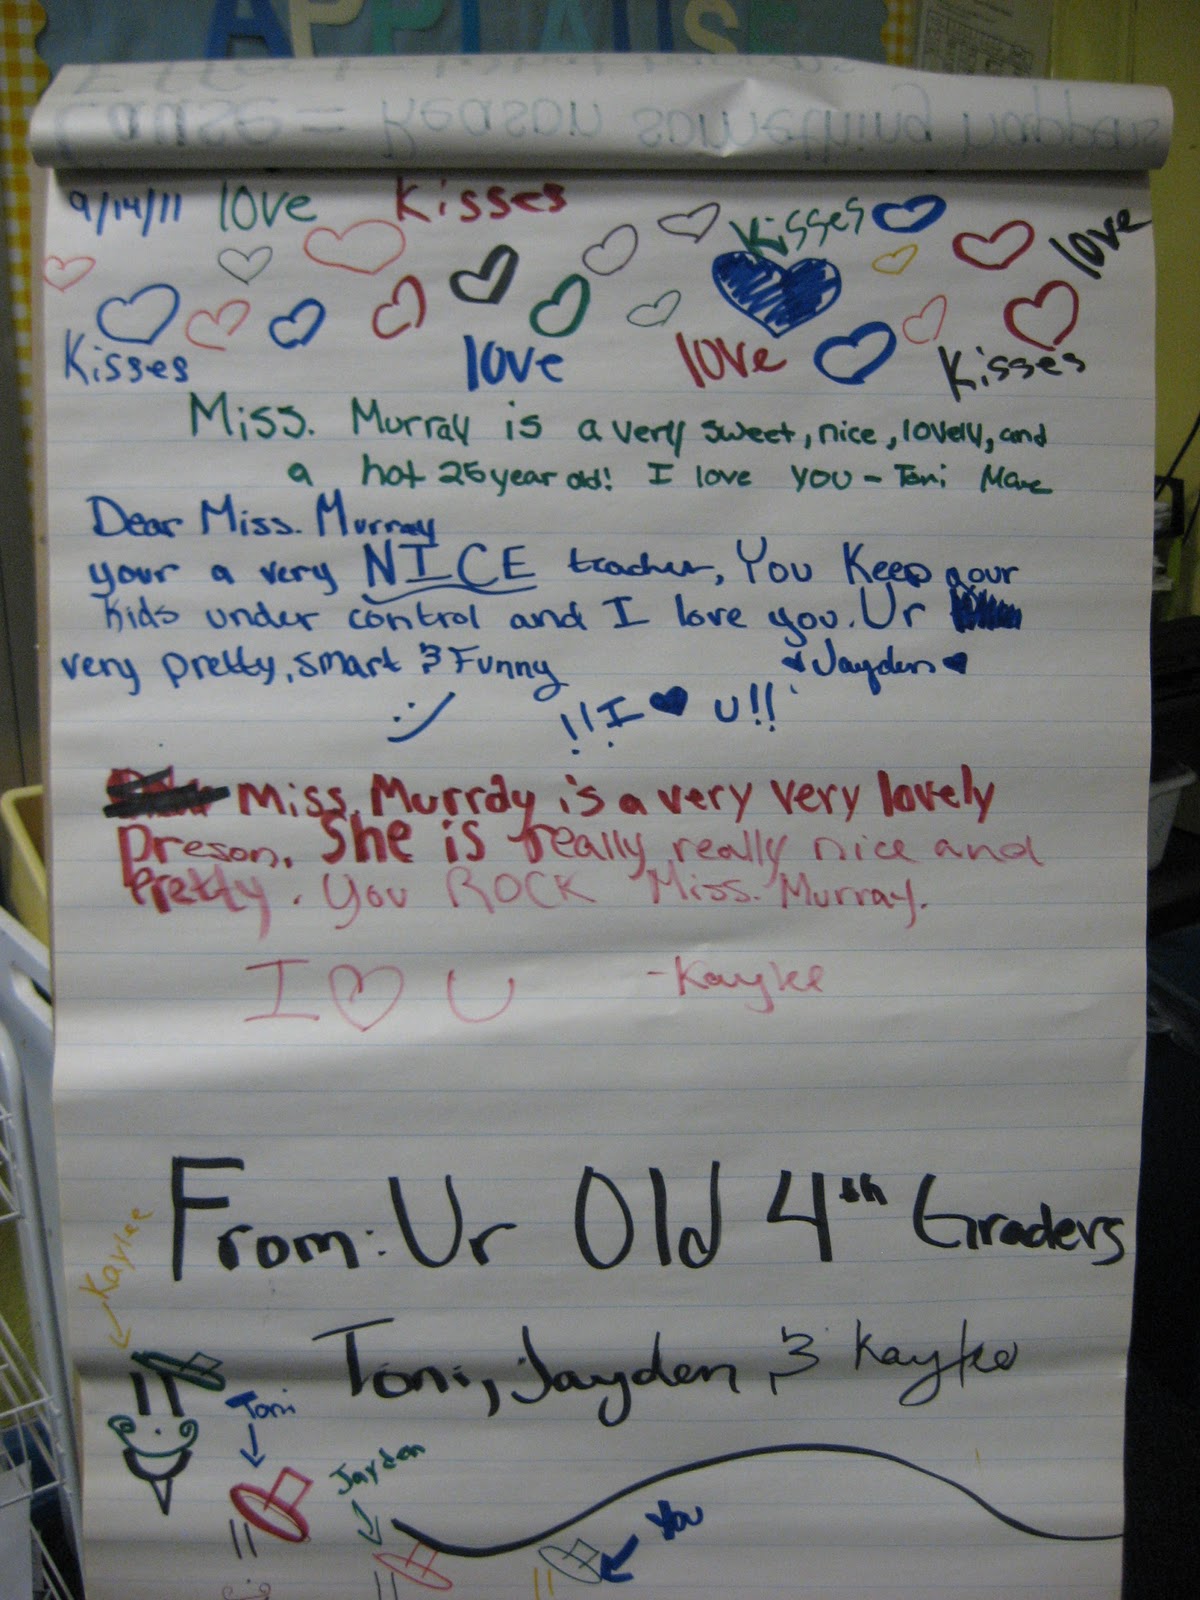 APPLAUSE
Cause = Reason something happens
9/14/11 love Kisses
Kisses love
Kisses love love Kisses
Miss. Murray is a very sweet, nice, lovely, and
a hot 25 year old! I love you - Toni Mare
Dear Miss. Murray
your a very NICE teacher, You Keep our
kids under control and I love you. Ur
very pretty, smart & Funny
Jayden
!!I ♥ U!!
Miss. Murray is a very very lovely
Preson. She is really really nice and
Pretty. You ROCK Miss. Murray.
I ♥ U -Kaylee
From: Ur Old 4th Graders
Kaylee
Toni, Jayden & Kaylee
Toni
Jayden
You